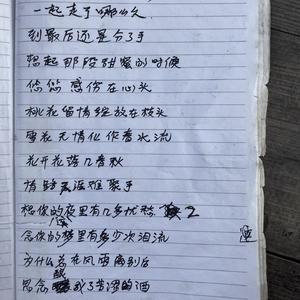 一起走了哪么久
到最后还是分了手
想起那段甜蜜的时候
悠悠感伤在心头
桃花留情绽放在枝头
雪花无情化作春水流
花开花落几春秋
情缘难聚手
想你的夜里有几多忧愁
念你的梦里有多少次泪流
为什么在风雨离别后
思念成了苦涩的酒